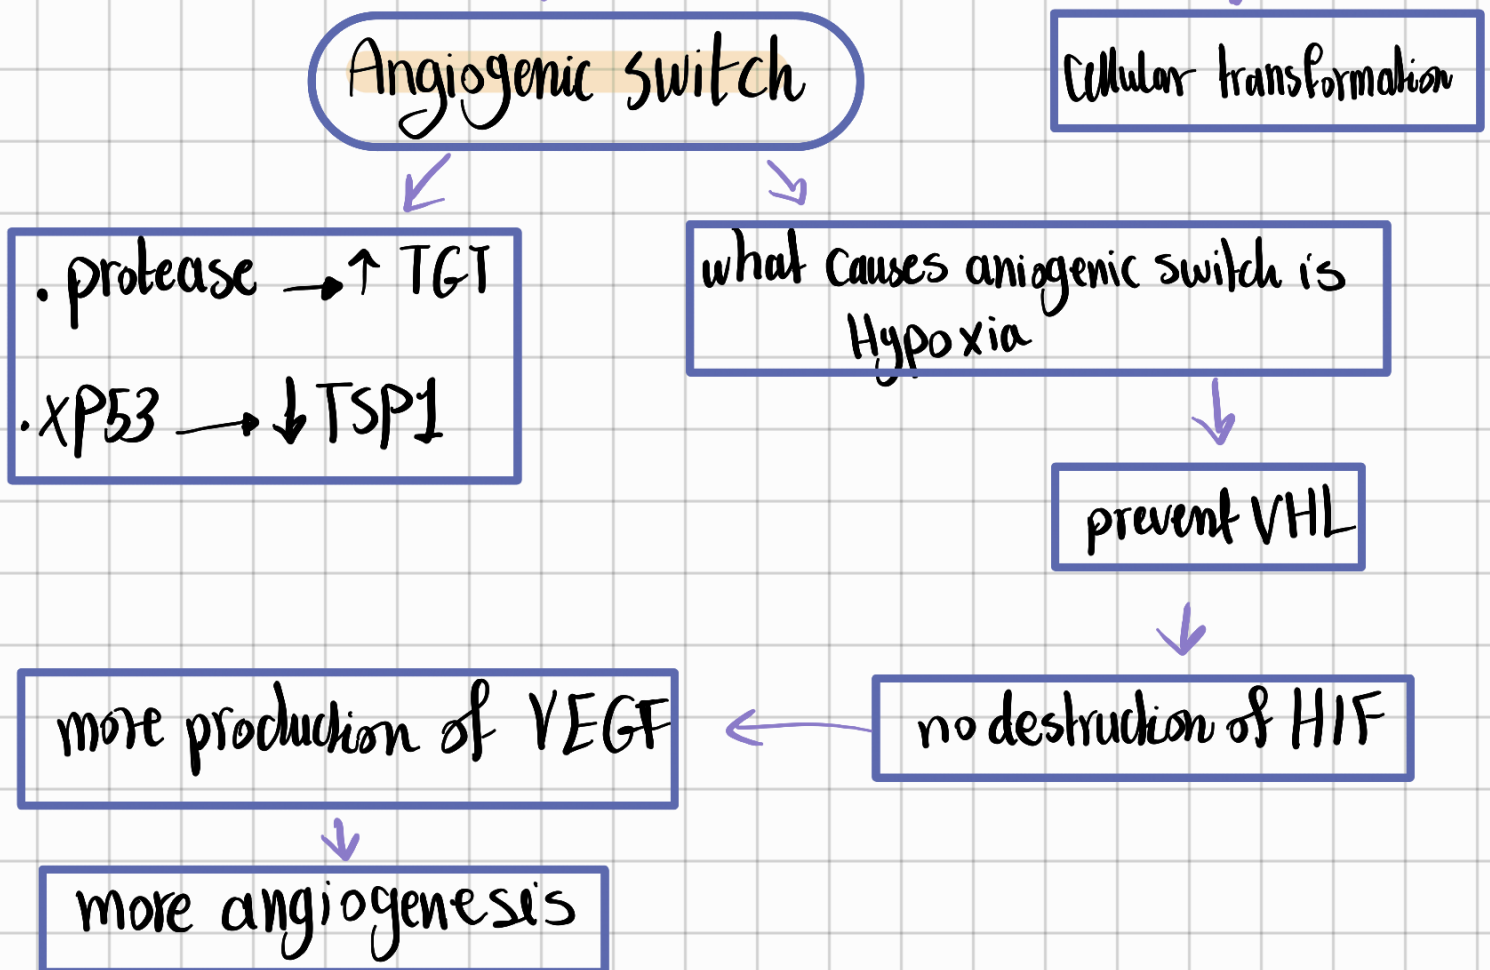 Angiogenic switch
Cellular transformation
. protease → ↑ TGT
. xP53 → ↓ TSP1
what causes aniogenic switch is
Hypoxia
prevent VHL
no destruction of HIF
more production of VEGF
more angiogenesis